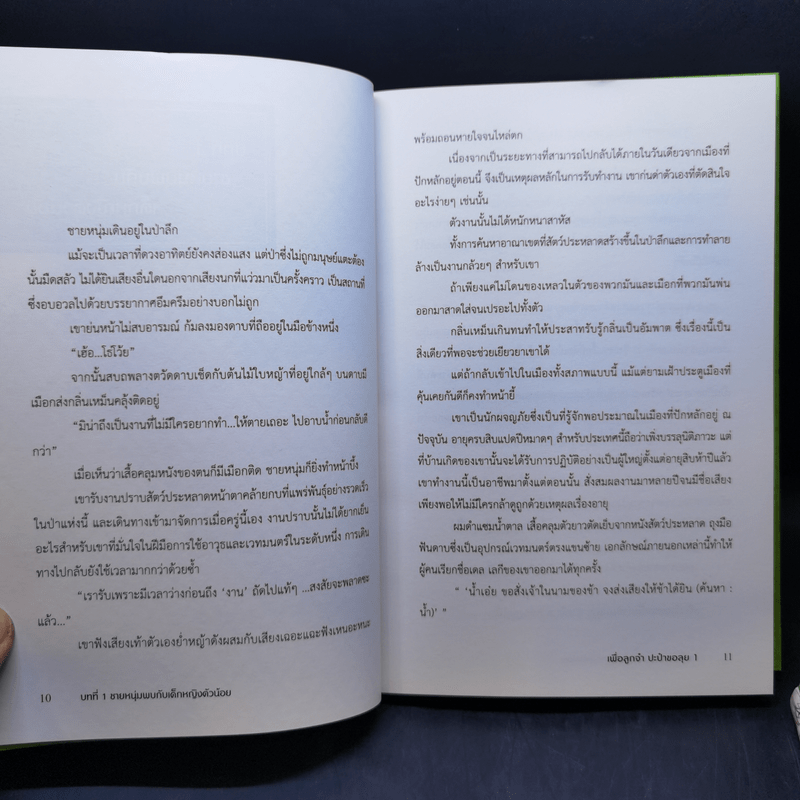 ชายหนุ่มเดินอยู่ในป่าลึก
แม้จะเป็นเวลาที่ดวงอาทิตย์ยังคงส่องแสง แต่ป่าซึ่งไม่ถูกมนุษย์แตะต้อง
นั้นมืดสลัว ไม่ได้ยินเสียงอื่นใดนอกจากเสียงนกที่แว่วมาเป็นครั้งคราว เป็นสถานที่
ซึ่งอบอวลไปด้วยบรรยากาศอึมครึมอย่างบอกไม่ถูก
เขาย่นหน้าไม่สบอารมณ์ ก้มลงมองดาบที่ถืออยู่ในมือข้างหนึ่ง
“เฮ้อ...โธ่โว้ย”
จากนั้นสบถพลางตวัดดาบเช็ดกับต้นไม้ใบหญ้าที่อยู่ใกล้ๆ บนดาบมี
เมือกส่งกลิ่นเหม็นคลุ้งติดอยู่
“มิน่าถึงเป็นงานที่ไม่มีใครอยากทำ...ให้ตายเถอะ ไปอาบน้ำก่อนกลับดี
กว่า”
เมื่อเห็นว่าเสื้อคลุมหนังของตนก็มีเมือกติด ชายหนุ่มก็ยิ่งทำหน้าบึ้ง
เขารับงานปราบสัตว์ประหลาดหน้าตาคล้ายกบที่แพร่พันธุ์อย่างรวดเร็ว
ในป่าแห่งนี้ และเดินทางเข้ามาจัดการเมื่อครู่นี้เอง งานปราบนั้นไม่ได้ยากเย็น
อะไรสำหรับเขาที่มั่นใจในฝีมือการใช้อาวุธและเวทมนตร์ในระดับหนึ่ง การเดิน
ทางไปกลับยังใช้เวลามากกว่าด้วยซ้ำ
“เรารับเพราะมีเวลาว่างก่อนถึง ‘งาน’ ถัดไปแท้ๆ ...สงสัยจะพลาดซะ
แล้ว...”
เขาฟังเสียงเท้าตัวเองย่ำหญ้าดังผสมกับเสียงเฉอะแฉะฟังเหนอะหนะ
10 บทที่ 1 ชายหนุ่มพบกับเด็กหญิงตัวน้อย
พร้อมถอนหายใจจนไหล่ตก
เนื่องจากเป็นระยะทางที่สามารถไปกลับได้ภายในวันเดียวจากเมืองที่
ปักหลักอยู่ตอนนี้ จึงเป็นเหตุผลหลักในการรับทำงาน เขาก่นด่าตัวเองที่ตัดสินใจ
อะไรง่ายๆ เช่นนั้น
ตัวงานนั้นไม่ได้หนักหนาสาหัส
ทั้งการค้นหาอาณาเขตที่สัตว์ประหลาดสร้างขึ้นในป่าลึกและการทำลาย
ล้างเป็นงานกล้วยๆ สำหรับเขา
ถ้าเพียงแค่ไม่โดนของเหลวในตัวของพวกมันและเมือกที่พวกมันพ่น
ออกมาสาดใส่จนเปรอะไปทั้งตัว
กลิ่นเหม็นเกินทนทำให้ประสาทรับรู้กลิ่นเป็นอัมพาต ซึ่งเรื่องนี้เป็น
สิ่งเดียวที่พอจะช่วยเยียวยาเขาได้
แต่ถ้ากลับเข้าไปในเมืองทั้งสภาพแบบนี้ แม้แต่ยามเฝ้าประตูเมืองที่
คุ้นเคยกันดีก็คงทำหน้ายี้
เขาเป็นนักผจญภัยซึ่งเป็นที่รู้จักพอประมาณในเมืองที่ปักหลักอยู่ ณ
ปัจจุบัน อายุครบสิบแปดปีหมาดๆ สำหรับประเทศนี้ถือว่าเพิ่งบรรลุนิติภาวะ แต่
ที่บ้านเกิดของเขานั้นจะได้รับการปฏิบัติอย่างเป็นผู้ใหญ่ตั้งแต่อายุสิบห้าปีแล้ว
เขาทำงานนี้เป็นอาชีพมาตั้งแต่ตอนนั้น สั่งสมผลงานมาหลายปีจนมีชื่อเสียง
เพียงพอให้ไม่มีใครกล้าดูถูกด้วยเหตุผลเรื่องอายุ
ผมดำแซมน้ำตาล เสื้อคลุมตัวยาวตัดเย็บจากหนังสัตว์ประหลาด ถุงมือ
ฟันดาบซึ่งเป็นอุปกรณ์เวทมนตร์ตรงแขนซ้าย เอกลักษณ์ภายนอกเหล่านี้ทำให้
ผู้คนเรียกชื่อเดล เลกีของเขาออกมาได้ทุกครั้ง
“ ‘น้ำเอ๋ย ขอสั่งเจ้าในนามของข้า จงส่งเสียงให้ข้าได้ยิน (ค้นหา :
น้ำ)’ ”
เพื่อลูกจ๋า ปะป๋าขอลุย 1 11